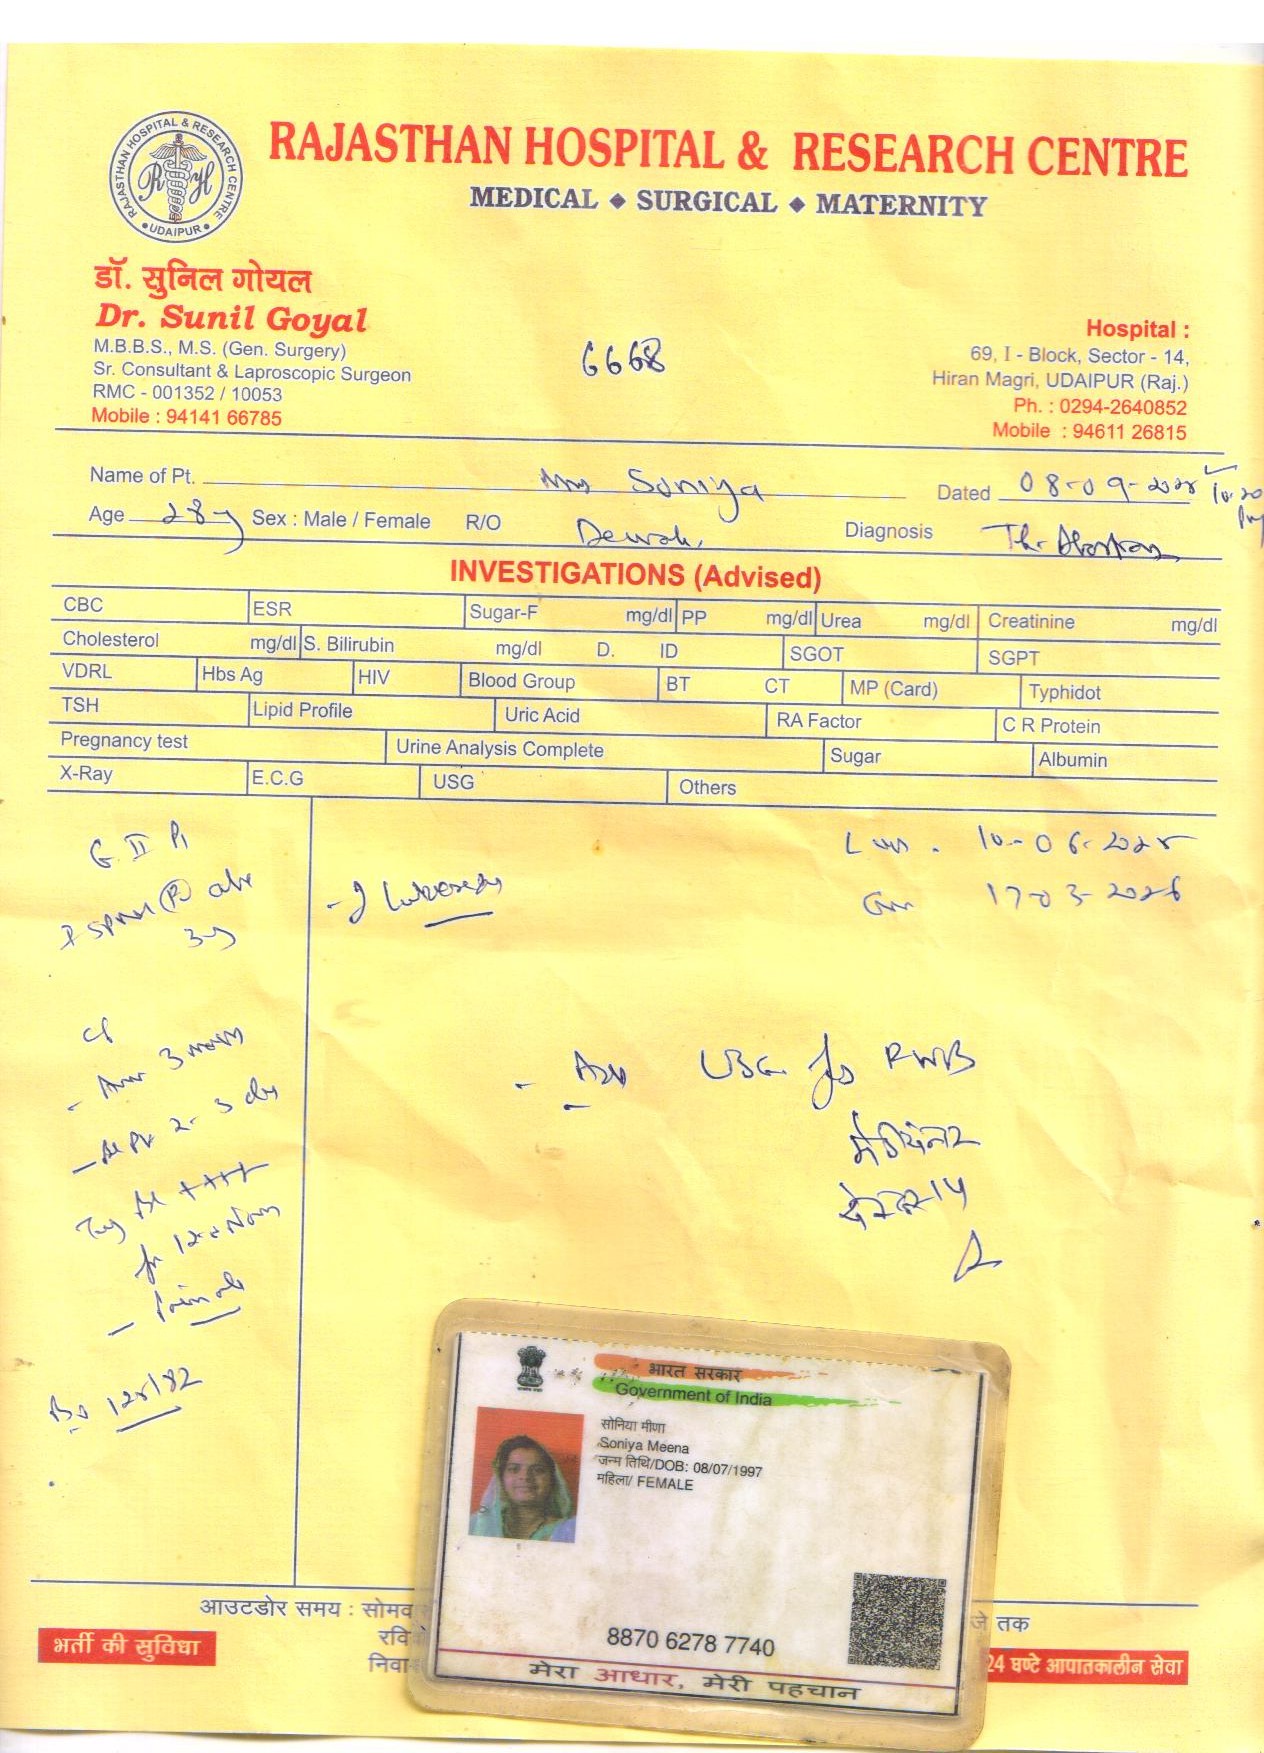 RAJASTHAN HOSPITAL & RESEARCH CENTRE
UDAIPUR
RH
RAJASTHAN HOSPITAL & RESEARCH CENTRE
MEDICAL ◆ SURGICAL ◆ MATERNITY
डॉ. सुनिल गोयल
Dr. Sunil Goyal
M.B.B.S., M.S. (Gen. Surgery)
Sr. Consultant & Laproscopic Surgeon
RMC - 001352 / 10053
Mobile : 94141 66785
6668
Hospital :
69, I - Block, Sector - 14,
Hiran Magri, UDAIPUR (Raj.)
Ph. : 0294-2640852
Mobile : 94611 26815
Name of Pt. Mrs Soniya Dated 08-09-2025 10.20
Age 28y Sex : Male / Female R/O Dewali Diagnosis Thr. Abortion
INVESTIGATIONS (Advised)
CBC ESR Sugar-F mg/dl PP mg/dl Urea mg/dl Creatinine mg/dl
Cholesterol mg/dl S. Bilirubin mg/dl D. ID SGOT SGPT
VDRL Hbs Ag HIV Blood Group BT CT MP (Card) Typhidot
TSH Lipid Profile Uric Acid RA Factor C R Protein
Pregnancy test Urine Analysis Complete Sugar Albumin
X-Ray E.C.G USG Others
G II P1
3y
L 10-06-2025
17-03-2026
- Adv USG for FWB
c/o
- 3 month
2-3 day
++++
- Pain
BP 125/82
भारत सरकार
Government of India
सोनिया मीणा
Soniya Meena
जन्म तिथि/DOB: 08/07/1997
महिला/ FEMALE
8870 6278 7740
मेरा आधार, मेरी पहचान
आउटडोर समय : सोमव
जे तक
रवि
निवा
भर्ती की सुविधा
24 घण्टे आपातकालीन सेवा